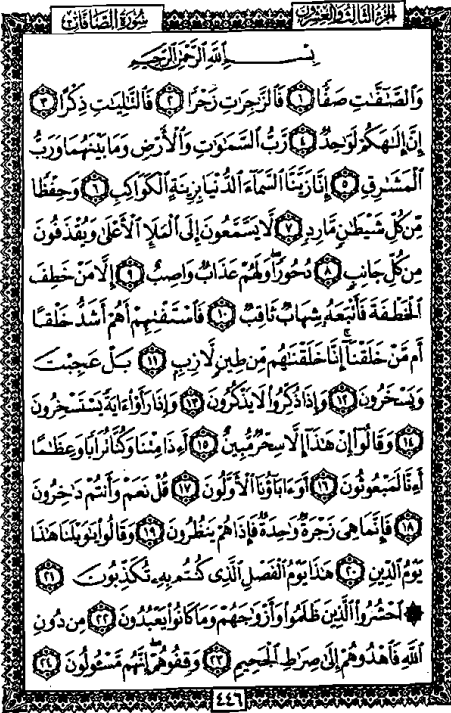 سُورَةُ الصَّافَّاتِ الجُزْءُ الثَّالِثُ وَالعِشْرُونَ
بِسْمِ اللَّهِ الرَّحْمَٰنِ الرَّحِيمِ
وَالصَّٰٓفَّٰتِ صَفًّا ۝١ فَالزَّٰجِرَٰتِ زَجْرًا ۝٢ فَالتَّٰلِيَٰتِ ذِكْرًا ۝٣
إِنَّ إِلَٰهَكُمْ لَوَٰحِدٌ ۝٤ رَّبُّ السَّمَٰوَٰتِ وَالْأَرْضِ وَمَا بَيْنَهُمَا وَرَبُّ
الْمَشَٰرِقِ ۝٥ إِنَّا زَيَّنَّا السَّمَآءَ الدُّنْيَا بِزِينَةٍ الْكَوَاكِبِ ۝٦ وَحِفْظًا
مِّن كُلِّ شَيْطَٰنٍ مَّارِدٍ ۝٧ لَّا يَسَّمَّعُونَ إِلَى الْمَلَإِ الْأَعْلَىٰ وَيُقْذَفُونَ
مِن كُلِّ جَانِبٍ ۝٨ دُحُورًا ۖ وَلَهُمْ عَذَابٌ وَاصِبٌ ۝٩ إِلَّا مَنْ خَطِفَ
الْخَطْفَةَ فَأَتْبَعَهُۥ شِهَابٌ ثَاقِبٌ ۝١٠ فَاسْتَفْتِهِمْ أَهُمْ أَشَدُّ خَلْقًا
أَم مَّنْ خَلَقْنَآ ۚ إِنَّا خَلَقْنَٰهُم مِّن طِينٍ لَّازِبٍۭ ۝١١ بَلْ عَجِبْتَ
وَيَسْخَرُونَ ۝١٢ وَإِذَا ذُكِّرُوا۟ لَا يَذْكُرُونَ ۝١٣ وَإِذَا رَأَوْا۟ ءَايَةً يَسْتَسْخِرُونَ
۝١٤ وَقَالُوٓا۟ إِنْ هَٰذَآ إِلَّا سِحْرٌ مُّبِينٌ ۝١٥ أَءِذَا مِتْنَا وَكُنَّا تُرَابًا وَعِظَٰمًا
أَءِنَّا لَمَبْعُوثُونَ ۝١٦ أَوَءَابَآؤُنَا الْأَوَّلُونَ ۝١٧ قُلْ نَعَمْ وَأَنتُمْ دَٰخِرُونَ
۝١٨ فَإِنَّمَا هِىَ زَجْرَةٌ وَٰحِدَةٌ فَإِذَا هُمْ يَنظُرُونَ ۝١٩ وَقَالُوا۟ يَٰوَيْلَنَا هَٰذَا
يَوْمُ الدِّينِ ۝٢٠ هَٰذَا يَوْمُ الْفَصْلِ الَّذِى كُنتُم بِهِۦ تُكَذِّبُونَ ۝٢١
۞ احْشُرُوا۟ الَّذِينَ ظَلَمُوا۟ وَأَزْوَٰجَهُمْ وَمَا كَانُوا۟ يَعْبُدُونَ ۝٢٢ مِن دُونِ
اللَّهِ فَاهْدُوهُمْ إِلَىٰ صِرَٰطِ الْجَحِيمِ ۝٢٣ وَقِفُوهُمْ ۖ إِنَّهُم مَّسْـُٔولُونَ ۝٢٤
٤٤٦